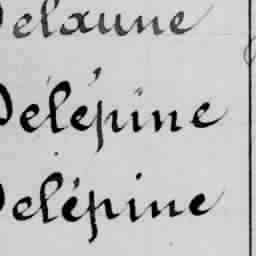 Delaune
Delépine
Delépine